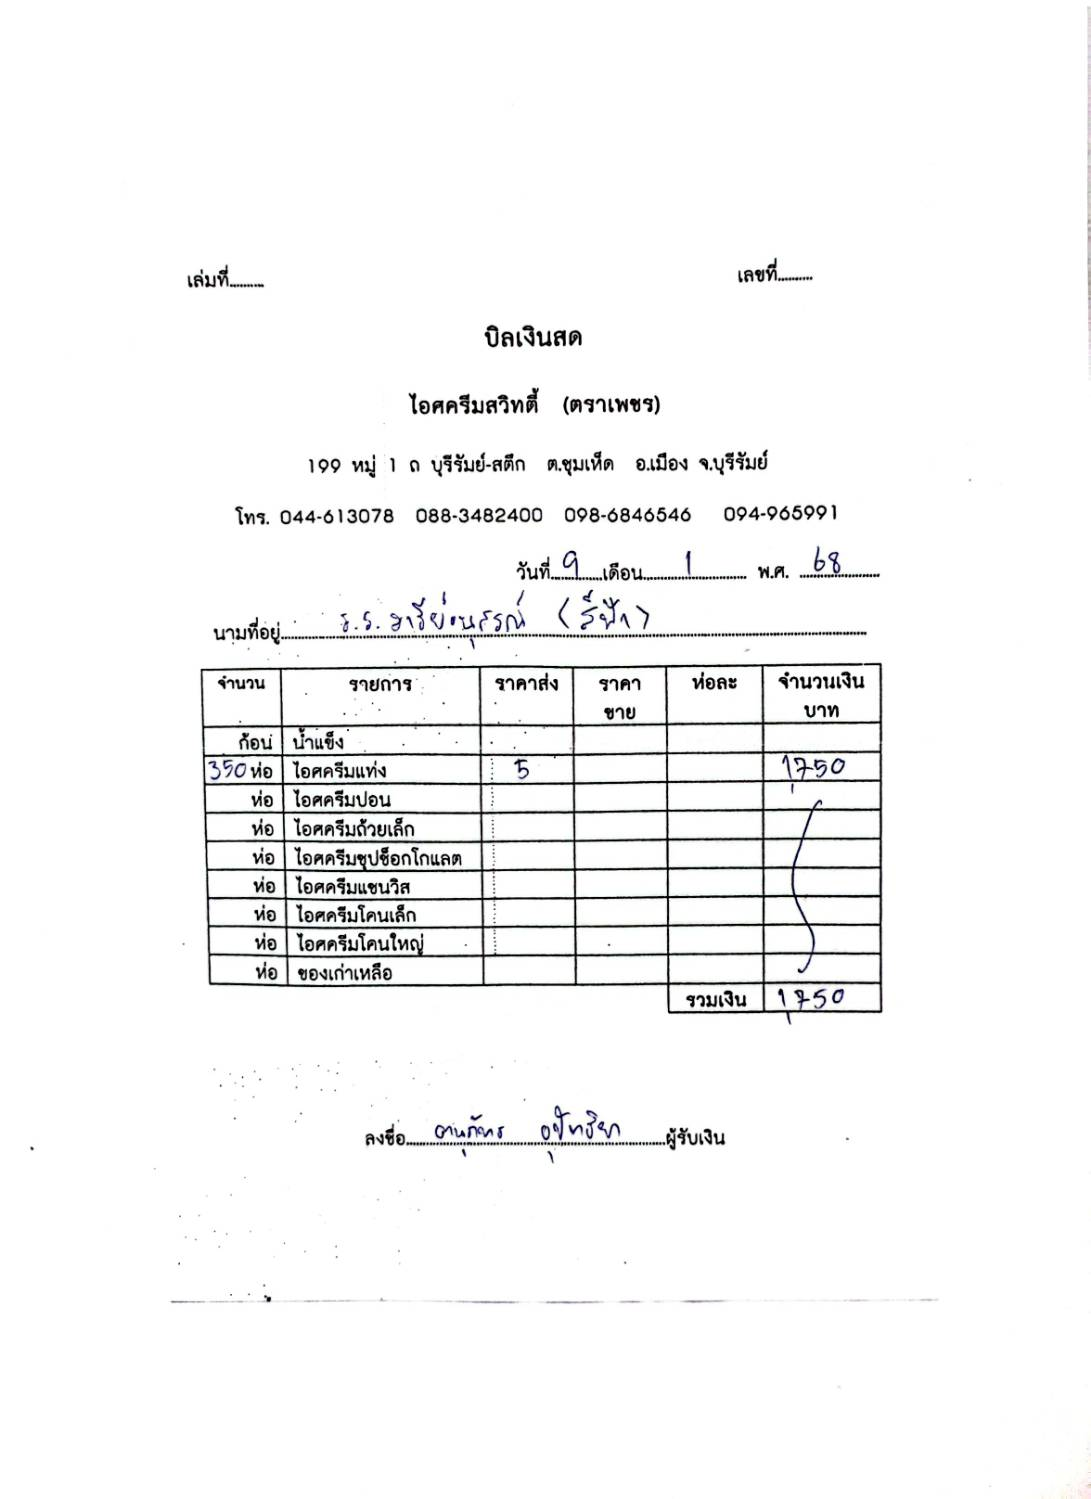 เล่มที่.......... เลขที่..........
บิลเงินสด
ไอศครีมสวิทตี้ (ตราเพชร)
199 หมู่ 1 ถ บุรีรัมย์-สตึก ต.ชุมเห็ด อ.เมือง จ.บุรีรัมย์
โทร. 044-613078 088-3482400 098-6846546 094-965991
วันที่ 9 เดือน 1 พ.ศ. 68
นามที่อยู่ ร.ร. อารีย์อนุสรณ์ (สีฟ้า)
จำนวน รายการ ราคาส่ง ราคาขาย ห่อละ จำนวนเงินบาท
ก้อน น้ำแข็ง
350 ห่อ ไอศครีมแท่ง 5 1,750
ห่อ ไอศครีมปอน
ห่อ ไอศครีมถ้วยเล็ก
ห่อ ไอศครีมชุปช็อกโกแลต
ห่อ ไอศครีมแซนวิส
ห่อ ไอศครีมโคนเล็ก
ห่อ ไอศครีมโคนใหญ่
ห่อ ของเก่าเหลือ
รวมเงิน 1,750
ลงชื่อ ผู้รับเงิน